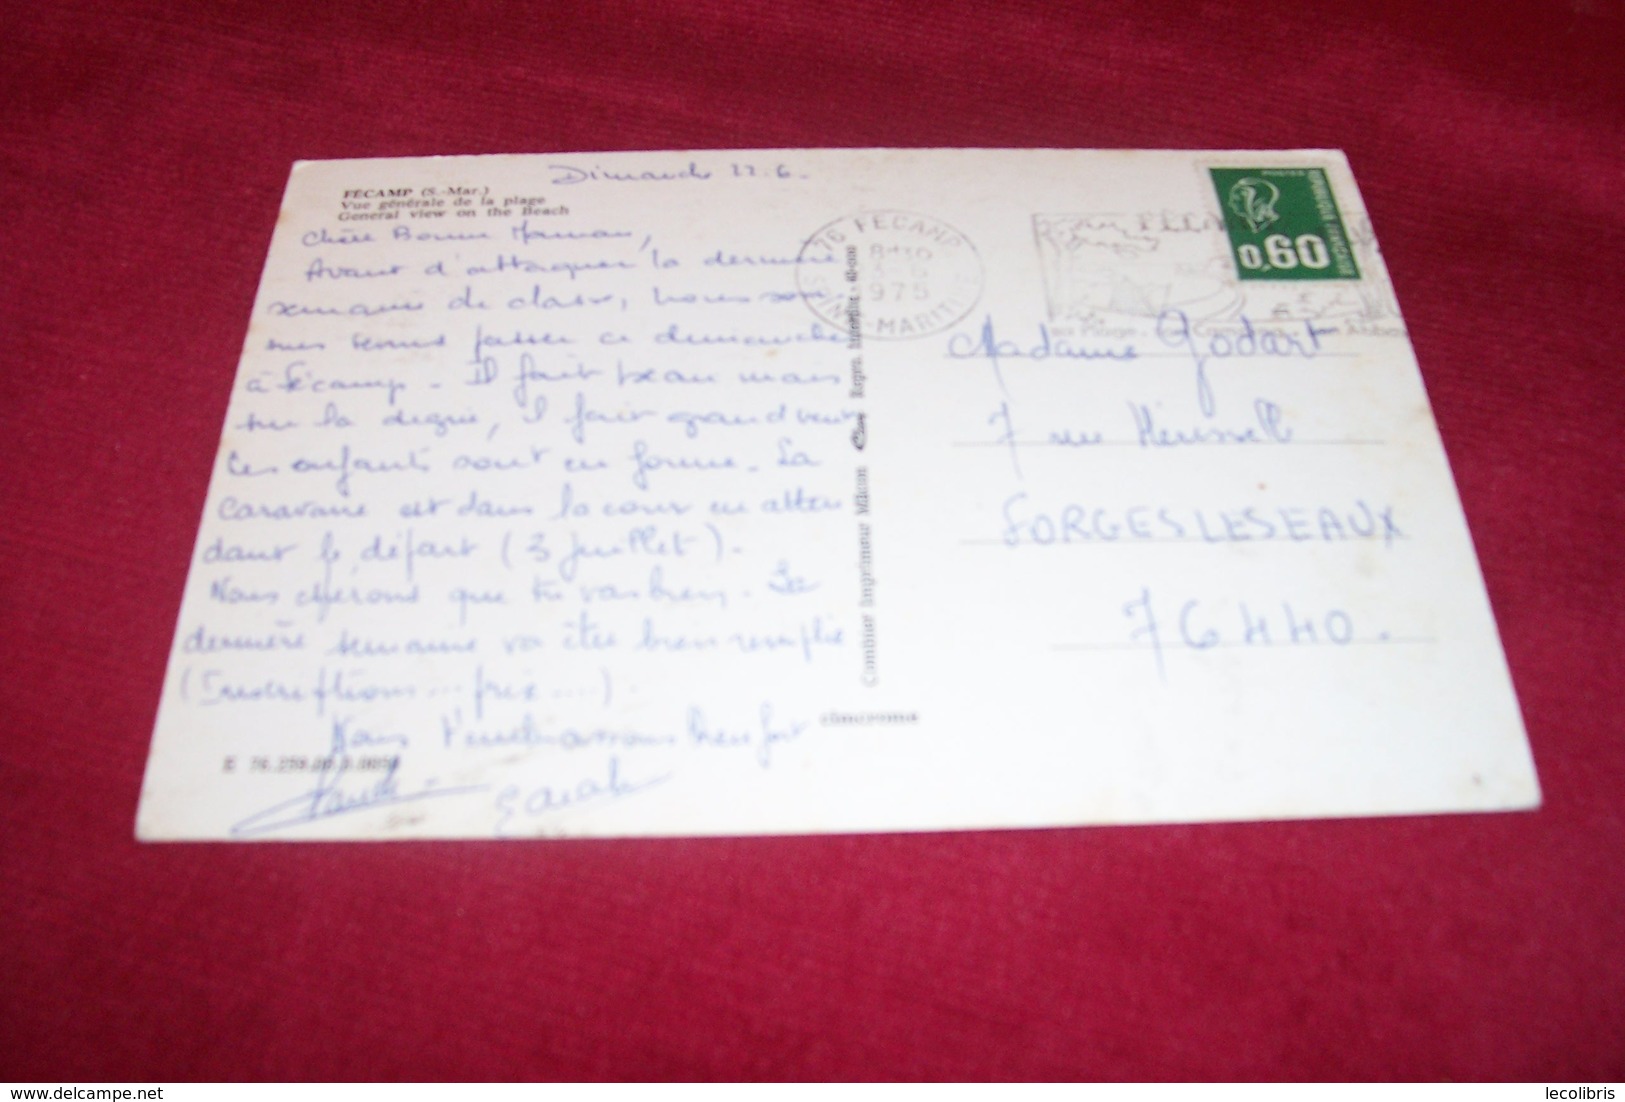 Dimanche 22.6.
FÉCAMP (S.-Mar.)
Vue générale de la plage
General view on the Beach
Chère Bonne Maman,
Avant d'attaquer la dernière
semaine de classe, nous som
mes venus passer ce dimanche
à Fécamp. Il fait beau mais
sur la digue, il fait grand vent
Les enfants sont en forme. La
caravane est dans la cour en atten
dant le départ (3 juillet).
Nous espérons que tu vas bien. La
dernière semaine va être bien remplie
(Inscriptions... prix...).
Nous t'embrassons bien fort
Sarah
E 76.259.00.
Combier Imprimeur Mâcon
cimcrome
76 FECAMP
1975
SEINE-MARITIME
POSTES
0,60
REPUBLIQUE FRANCAISE
Madame Godart
7 rue
FORGES LES EAUX
76440.
lecolibris